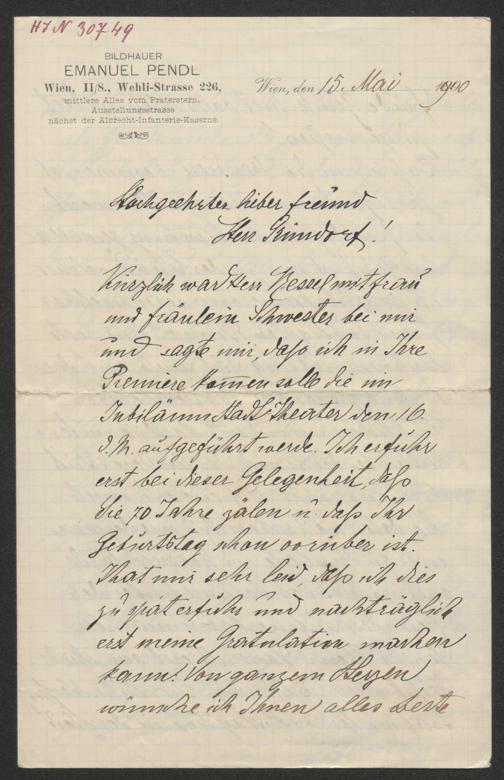 HIN 30749
BILDHAUER
EMANUEL PENDL
Wien, II/8., Wehli-Strasse 226,
mittlere Allee vom Praterstern.
Ausstellungsstrasse
nächst der Albrecht-Infanterie-Kaserne.
Wien, den 15. Mai 1900
Hochgeehrter lieber Freund
Herr !
Kürzlich war Herr Wessel mit Frau
und Fräulein Schwester bei mir
und sagte mir, daß ich in Ihre
Premiere kommen solle die im
Jubiläums Stadt Theater den 16.
d. M. aufgeführt werde. Ich erfuhr
erst bei dieser Gelegenheit, daß
Sie 70 Jahre zälen u. daß Ihr
Geburtstag schon vorüber ist.
That mir sehr leid, daß ich dies
zu spät erfuhr und nachträglich
erst meine Gratulation machen
kann! Von ganzem Herzen
wünsche ich Ihnen alles Beste